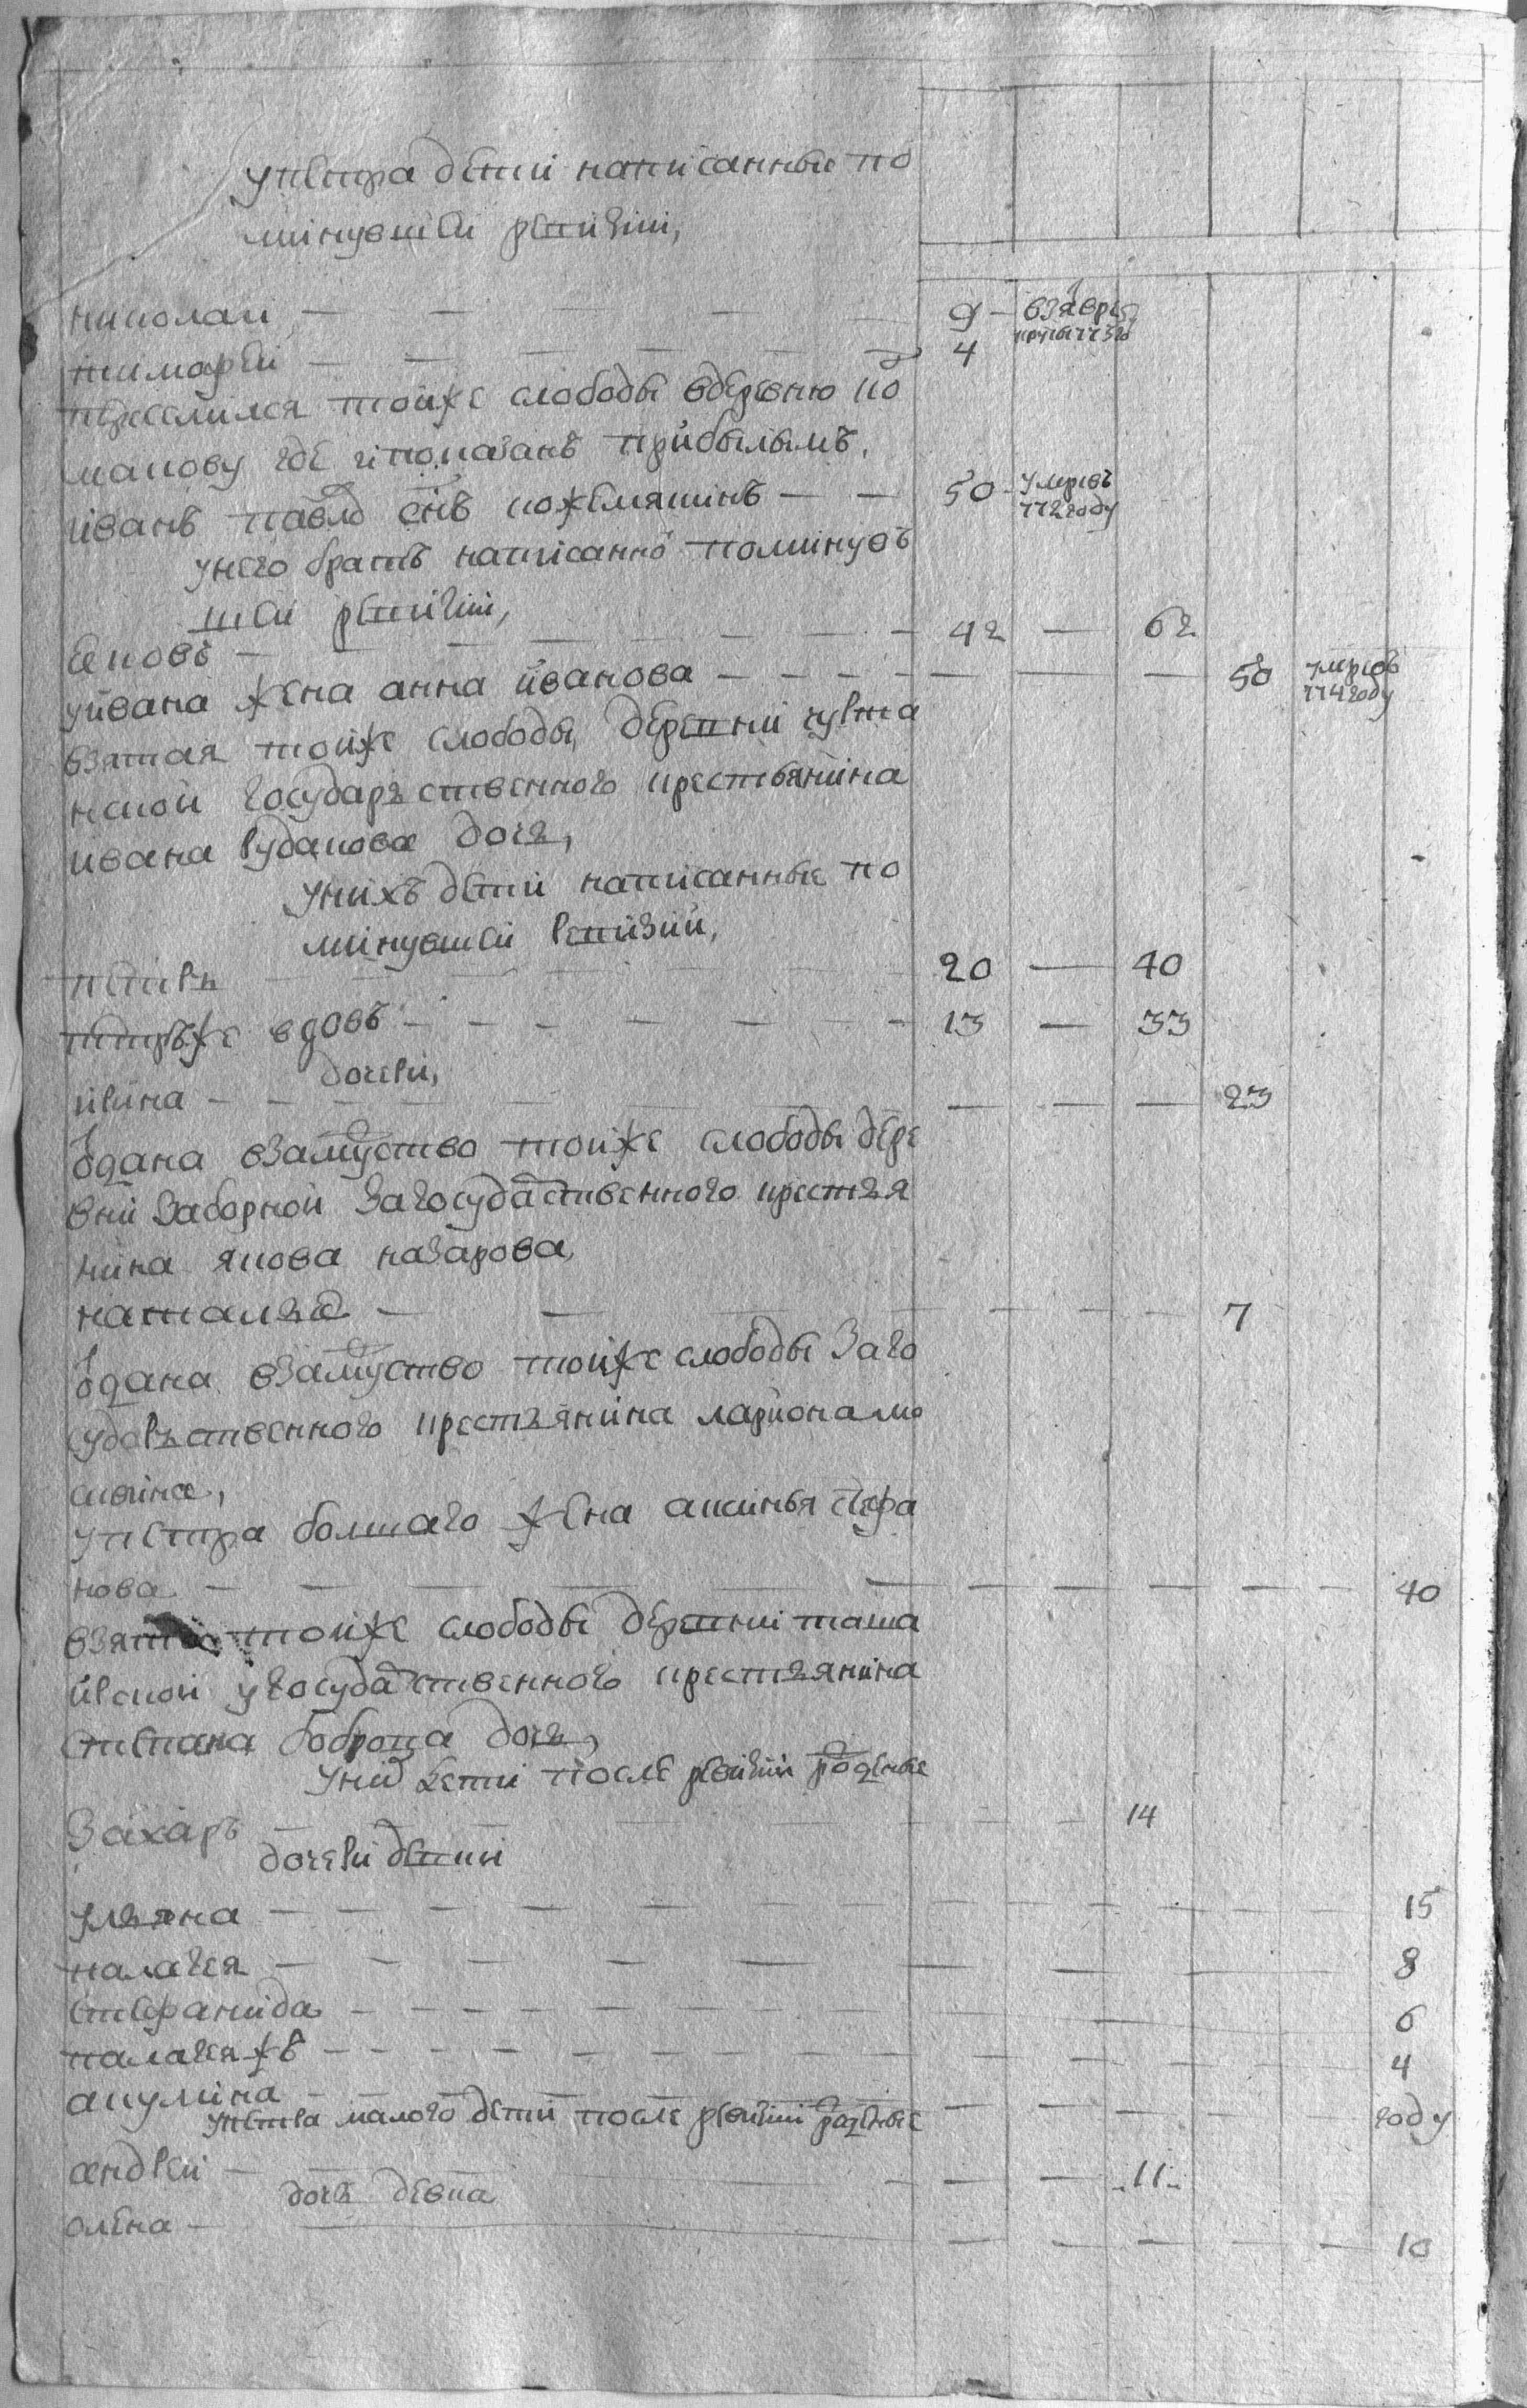 у петра дети написанные по
минувшей ревизии,
николай — — — — 9 — взятъ врекруты 773го
тимофей — — — — 4
переселился тойже слободы вдеревню по
макову где ипоказанъ прибылымъ,
иванъ павлов снъ кожемякинъ — — 50 — умревъ 772 году
у него братъ написанно поминув
шей ревизии,
яковъ — — — — 42 — 62
уивана жена анна иванова — — — — 50 умревъ 774 году
взятая тойже слободы, деревни
нской государственного крестьянина
ивана рудакова дочь,
у нихъ дети написанные по
минувшей ревизии,
петръ 20 — 40
петръже вдовъ — — — 13 — 33
дочери,
ирина — — — — 23
одана взамуство тойже слободы дере
вни заборной загосударственного крестья
нина якова назарова,
наталья — — — — 7
одана взамуство тойже слободы заго
сударственного крестьянина лариона мо
сквина,
упетра болшаго жена аксинья стефа
нова — — — — 40
взята тойже слободы деревни таша
ирской угосударственного крестьянина
степана боброва дочь,
у них дети после ревизии рожденные
захаръ — — — 14
дочери дети
ульяна — — — — 15
палагея — — — — 8
стефанида — — — — 6
палагеяжъ — — — — 4
акулина — — — — году
упетра малого дети после ревизии рожденные
андрей — — — 11
дочь девка
олена — — — — 10